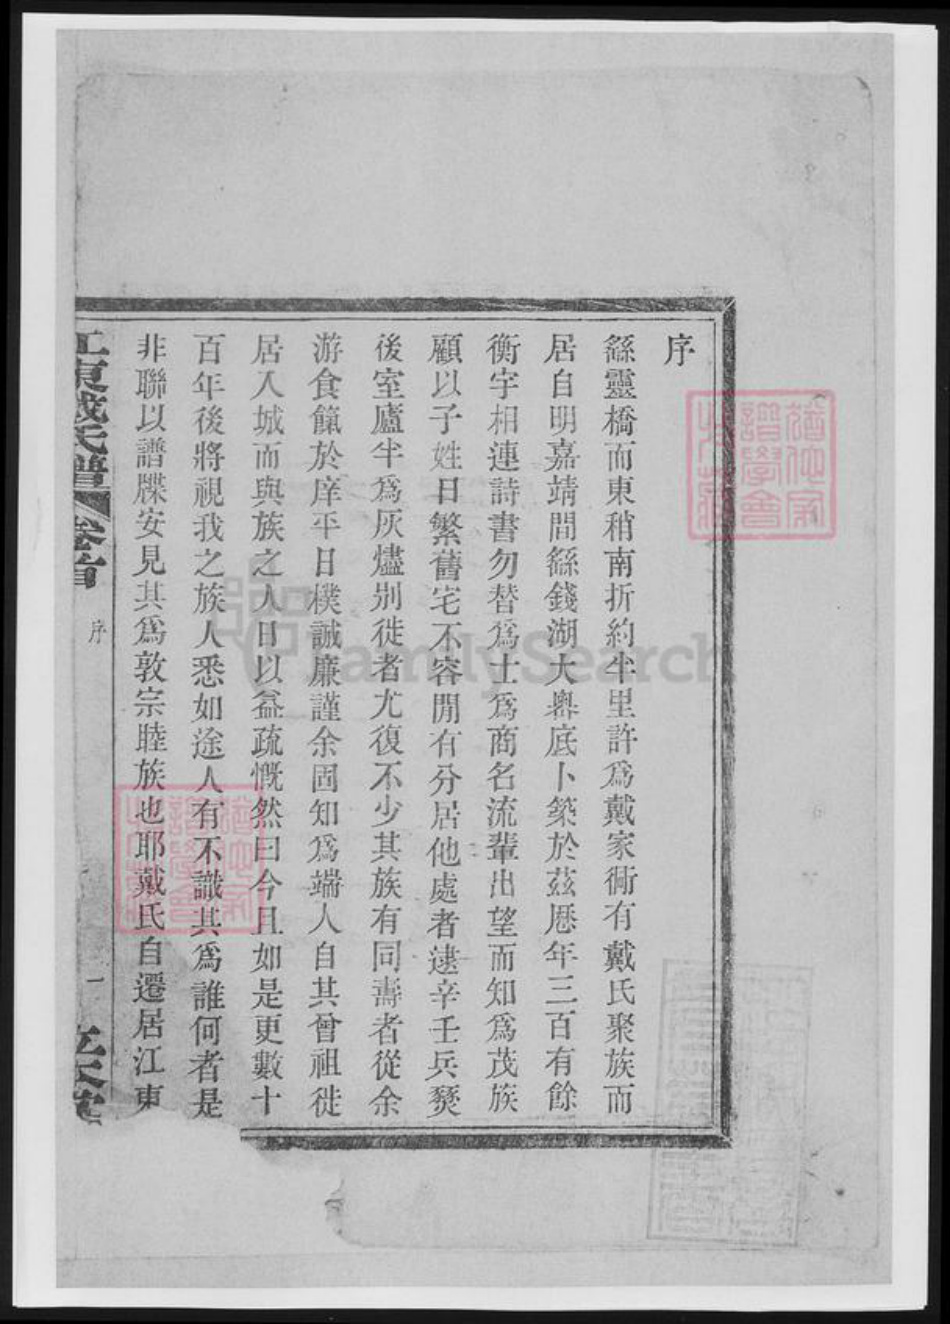 序
繇靈橋而東稍南折約半里許為戴家衕有戴氏聚族而
居自明嘉靖間繇錢湖大嶴底卜築於茲厯年三百有餘
衡宇相連詩書勿替為士為商名流輩出望而知為茂族
顧以子姓日繁舊宅不容閒有分居他處者逮辛壬兵燹
後室廬半為灰燼別徙者尤復不少其族有同壽者從余
游食餼於庠平日樸誠廉謹余固知為端人自其曾祖徙
居入城而與族之人日以益疏慨然曰今且如是更數十
百年後將視我之族人悉如途人有不識其為誰何者是
非聯以譜牒安見其為敦宗睦族也耶戴氏自遷居江東
江東戴氏譜 卷首 序 一
FamilySearch